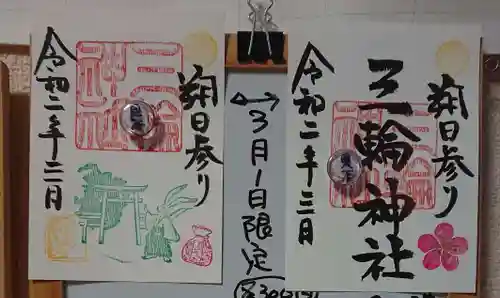 朔日参り
三輪神社
令和二年三月
3月1日限定
朔日参り
令和二年三月